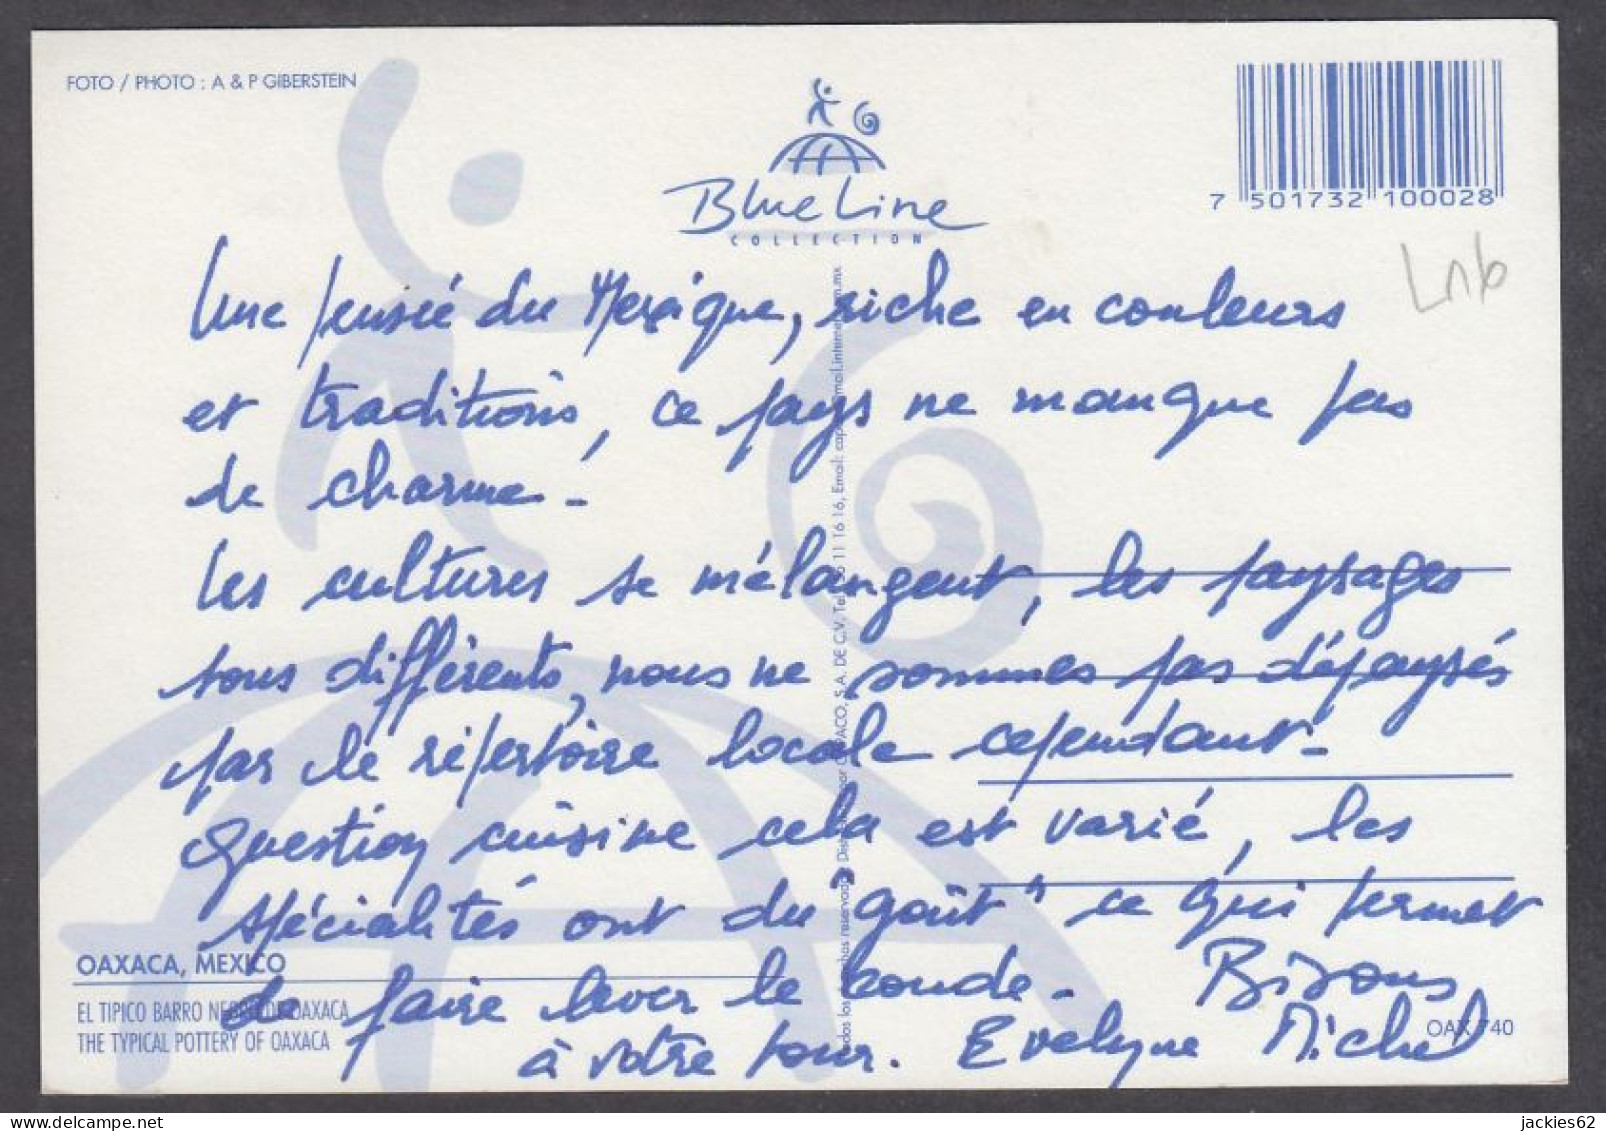 FOTO / PHOTO : A & P GIBERSTEIN
Blue Line
COLLECTION
7 501732 100028
Une pensée du Mexique, riche en couleurs
et traditions, ce pays ne manque pas
de charme.
Les cultures se mélangent, les paysages
tous différents, nous ne sommes pas dépaysés
par le répertoire locale cependant.
Question cuisine cela est varié, les
spécialités ont du goût" ce qui permet
de faire lever le coude. Bisous
à votre tour. Evelyne Michel
OAXACA, MEXICO
EL TIPICO BARRO NEGRO DE OAXACA
THE TYPICAL POTTERY OF OAXACA
OAX 740
jackies62